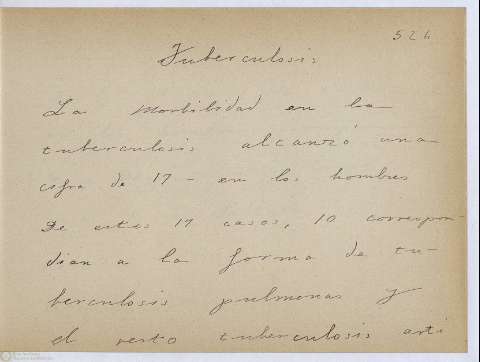 524
Tuberculosis
La Morbilidad en la
tuberculosis alcanzó una
cifra de 17 - en los hombres
De estos 17 casos, 10 correspon-
dian a la forma de tu-
berculosis pulmonar y
el resto tuberculosis arti